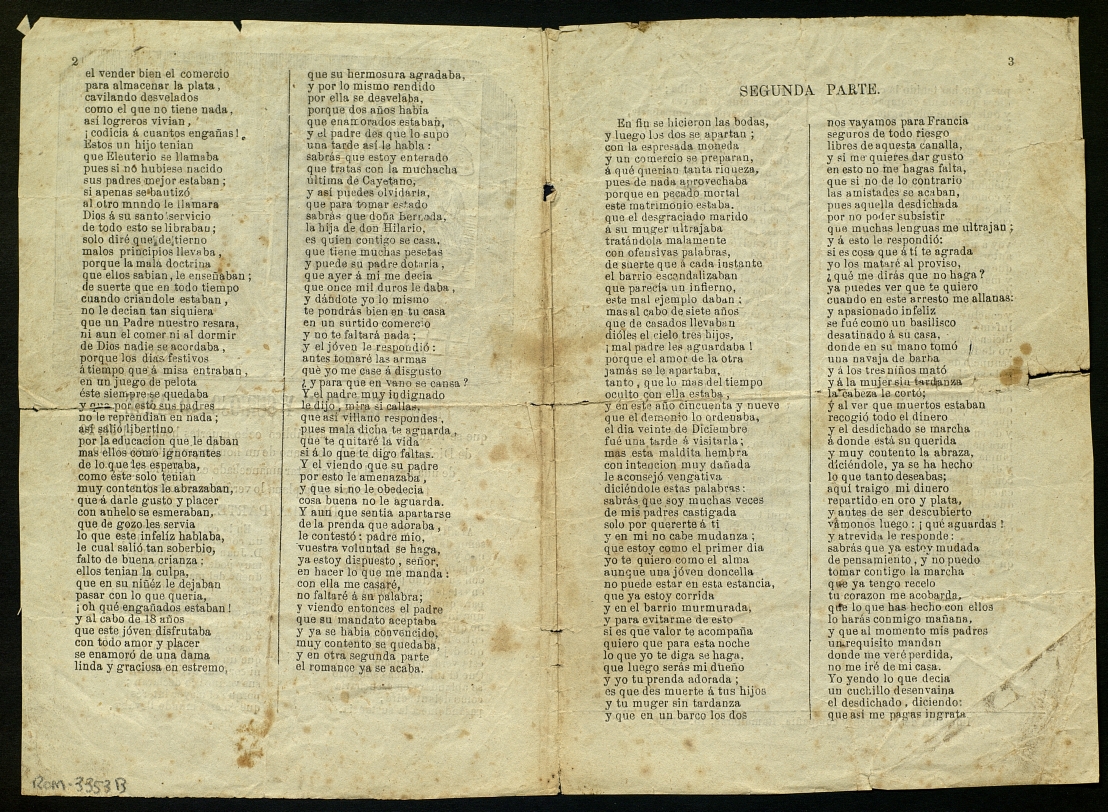 2
el vender bien el comercio
para almacenar la plata,
cavilando desvelados
como el que no tiene nada,
así logreros vivian,
¡codicia á cuantos engañas!
Estos un hijo tenian
que Eleuterio se llamaba
pues si no hubiese nacido
sus padres mejor estaban;
si apenas se bautizó
al otro mnndo le llamara
Dios á su santo servicio
de todo esto se libraban;
solo diré que de tierno
malos principios llevaba,
porque la mala doctrina
que ellos sabian, le enseñaban;
de suerte que en todo tiempo
cuando criandole estaban,
no le decian tan siquiera
que un Padre nuestro resara,
ni aun el comer ni al dormir
de Dios nadie se acordaba,
porque los dias festivos
á tiempo que á misa entraban,
en un juego de pelota
éste siempre se quedaba
y que por esto sus padres
no le reprendian en nada;
así salió libertino
por la educacion que le daban
mas ellos como ignorantes
de lo que les esperaba,
como éste solo tenian
muy contentos le abrazaban,
que á darle gusto y placer
con anhelo se esmeraban,
que de gozo les servia
lo que este infelíz hablaba,
le cual salió tan soberbio,
falto de buena crianza;
ellos tenian la culpa,
que en su niñéz le dejaban
pasar con lo que queria,
¡oh qué engañados estaban!
y al cabo de 18 años
que este jóven disfrutaba
con todo amor y placer
se enamoró de una dama
linda y graciosa en estremo,
que su hermosura agradaba,
y por lo mismo rendido
por ella se desvelaba,
porque dos años habia
que enamorados estaban,
y el padre des que lo supo
una tarde así le habla:
sabrás que estoy enterado
que tratas con la muchacha
última de Cayetano,
y así puedes olvidarla,
que para tomar estado
sabrás que doña Bernada,
la hija de don Hilario,
es quien contigo se casa,
que tiene muchas pesetas
y puede su padre dotarla,
que ayer á mí me decia
que once mil duros le daba,
y dándote yo lo mismo
te pondrás bien en tu casa
en un surtido comercio
y no te faltará nada;
y el jóven le respondió:
antes tomaré las armas
que yo me case á disgusto
¿y para que en vano se cansa?
Y el padre muy indignado
le dijo, mira si callas,
que así villano respondes,
pues mala dicha te aguarda,
que te quitaré la vida
si á lo que te digo faltas.
Y el viendo que su padre
por esto le amenazaba,
y que si no le obedecia
cosa buena no le aguarda.
Y aun que sentia apartarse
de la prenda que adoraba,
le contestó: padre mio,
vuestra voluntad se haga,
ya estoy dispuesto, señor,
en hacer lo que me manda:
con ella me casaré,
no faltaré á su palabra;
y viendo entonces el padre
que su mandato aceptaba
y ya se habia convencido,
muy contento se quedaba,
y en otra segunda parte
el romance ya se acaba.
ROM-3353B
3
SEGUNDA PARTE.
En fin se hicieron las bodas,
y luego los dos se apartan;
con la espresada moneda
y un comercio se preparan,
á qué querian tanta riqueza,
pues de nada aprovechaba
porque en pecado mortal
este matrimonio estaba.
que el desgraciado marido
á su muger ultrajaba
tratándola malamente
con ofensivas palabras,
de suerte que á cada instante
el barrio escandalizaban
que parecia un infierno,
este mal ejemplo daban;
mas al cabo de siete años
que de casados llevaban
dióles el cielo tres hijos,
¡mal padre les aguardaba!
porque el amor de la otra
jamás se le apartaba,
tanto, que lo mas del tiempo
oculto con ella estaba,
y en este año cincuenta y nueve
que el demonio lo ordenaba,
el dia veinte de Diciembre
fué una tarde á visitarla;
mas esta maldita hembra
con intencion muy dañada
le aconsejó vengativa
diciéndole estas palabras:
sabrás que soy muchas veces
de mis padres castigada
solo por quererte á ti
y en mi no cabe mudanza;
que estoy como el primer dia
yo te quiero como el alma
aunque una jóven doncella
no puede estar en esta estancia,
que ya estoy corrida
y en el barrio murmurada,
y para evitarme de esto
si es que valor te acompaña
quiero que para esta noche
lo que yo te diga se haga,
que luego serás mi dueño
y yo tu prenda adorada;
es que des muerte á tus hijos
y tu muger sin tardanza
y que en un barco los dos
nos vayamos para Francia
seguros de todo riesgo
libres de aquesta canalla,
y si me quieres dar gusto
en esto no me hagas falta,
que si no de lo contrario
las amistades se acaban,
pues aquella desdichada
por no poder subsistir
que muchas lenguas me ultrajan;
y á esto le respondió:
si es cosa que á tí te agrada
yo los mataré al proviso,
¿qué me dirás que no haga?
ya puedes ver que te quiero
cuando en este arresto me allanas:
y apasionado infeliz
se fué como un basilisco
desatinado á su casa,
donde en su mano tomó
una navaja de barba
y á los tres niños mató
y á la mujer sin tardanza
la cabeza le cortó;
y al ver que muertos estaban
recogió todo el dinero
y el desdichado se marcha
á donde está su querida
y muy contento la abraza,
diciéndole, ya se ha hecho
lo que tanto deseabas;
aquí traigo mi dinero
repartido en oro y plata,
y antes de ser descubierto
vámonos luego: ¡qué aguardas!
y atrevida le responde:
sabrás que ya estoy mudada
de pensamiento, y no puedo
tomar contigo la marcha
que ya tengo recelo
tu corazon me acobarda,
que lo que has hecho con ellos
lo harás conmigo mañana,
y que al momento mis padres
un requisito mandan
donde me veré perdida,
no me iré de mi casa.
Yo yendo lo que decia
un cuchillo desenvaina
el desdichado, diciendo:
que así me pagas ingrata